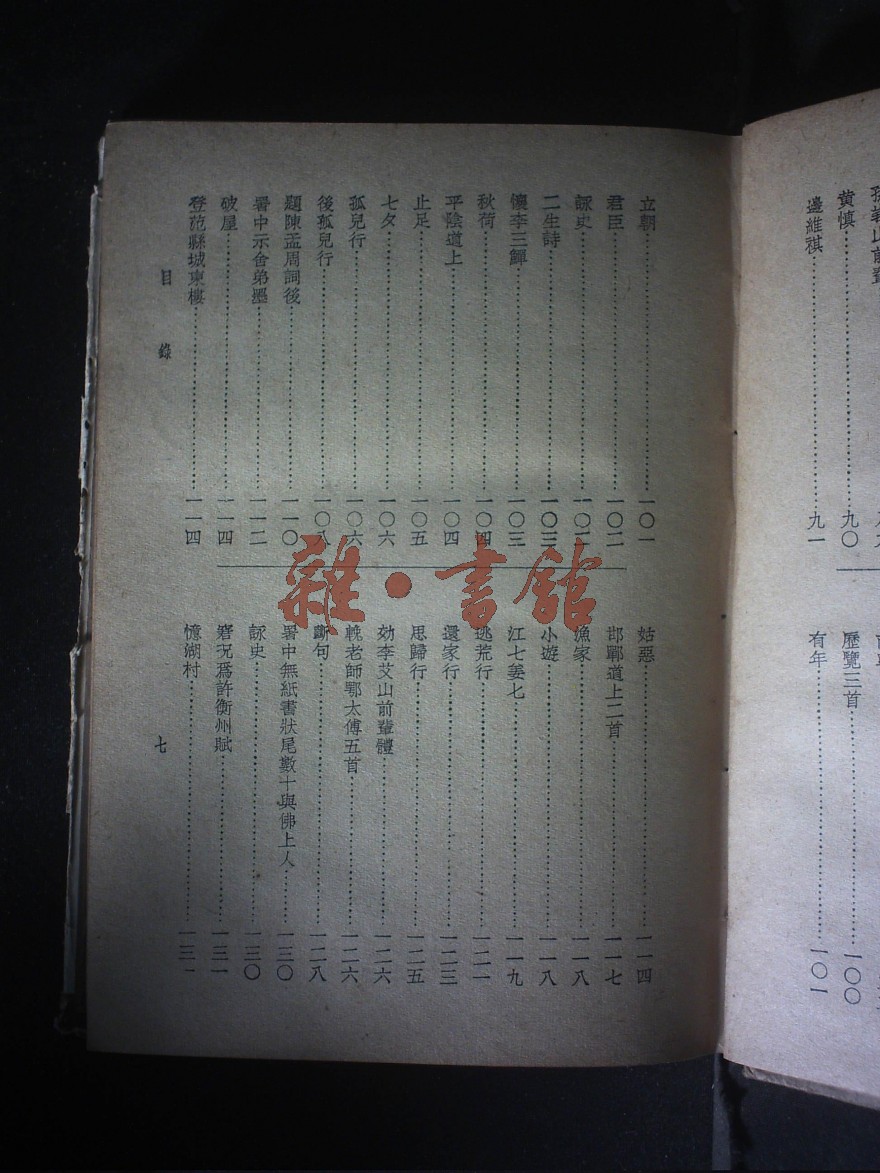 黄慎……九〇
邊維祺……九一
歷覽三首……一〇〇
有年……一〇一
立朝……一〇一
君臣……一〇二
詠史……一〇二
二生詩……一〇三
懷李三鱓……一〇三
秋荷……一〇四
平陰道上……一〇四
止足……一〇五
七夕……一〇六
孤兒行……一〇六
後孤兒行……一〇八
題陳孟周詞後……一一〇
署中示舍弟墨……一一二
破屋……一一四
登范縣城東樓……一一四
姑惡……一一四
邯鄲道上二首……一一七
漁家……一一八
小遊……一一八
江七姜七……一一九
逃荒行……一二一
還家行……一二三
思歸行……一二五
効李艾山前輩體……一二六
輓老師鄂太傅五首……一二六
斷句……一二八
署中無紙書狀尾數十與佛上人……一三〇
詠史……一三〇
窘况爲許衡州賦……一三一
憶湖村……一三一
目錄
七
雜·書館